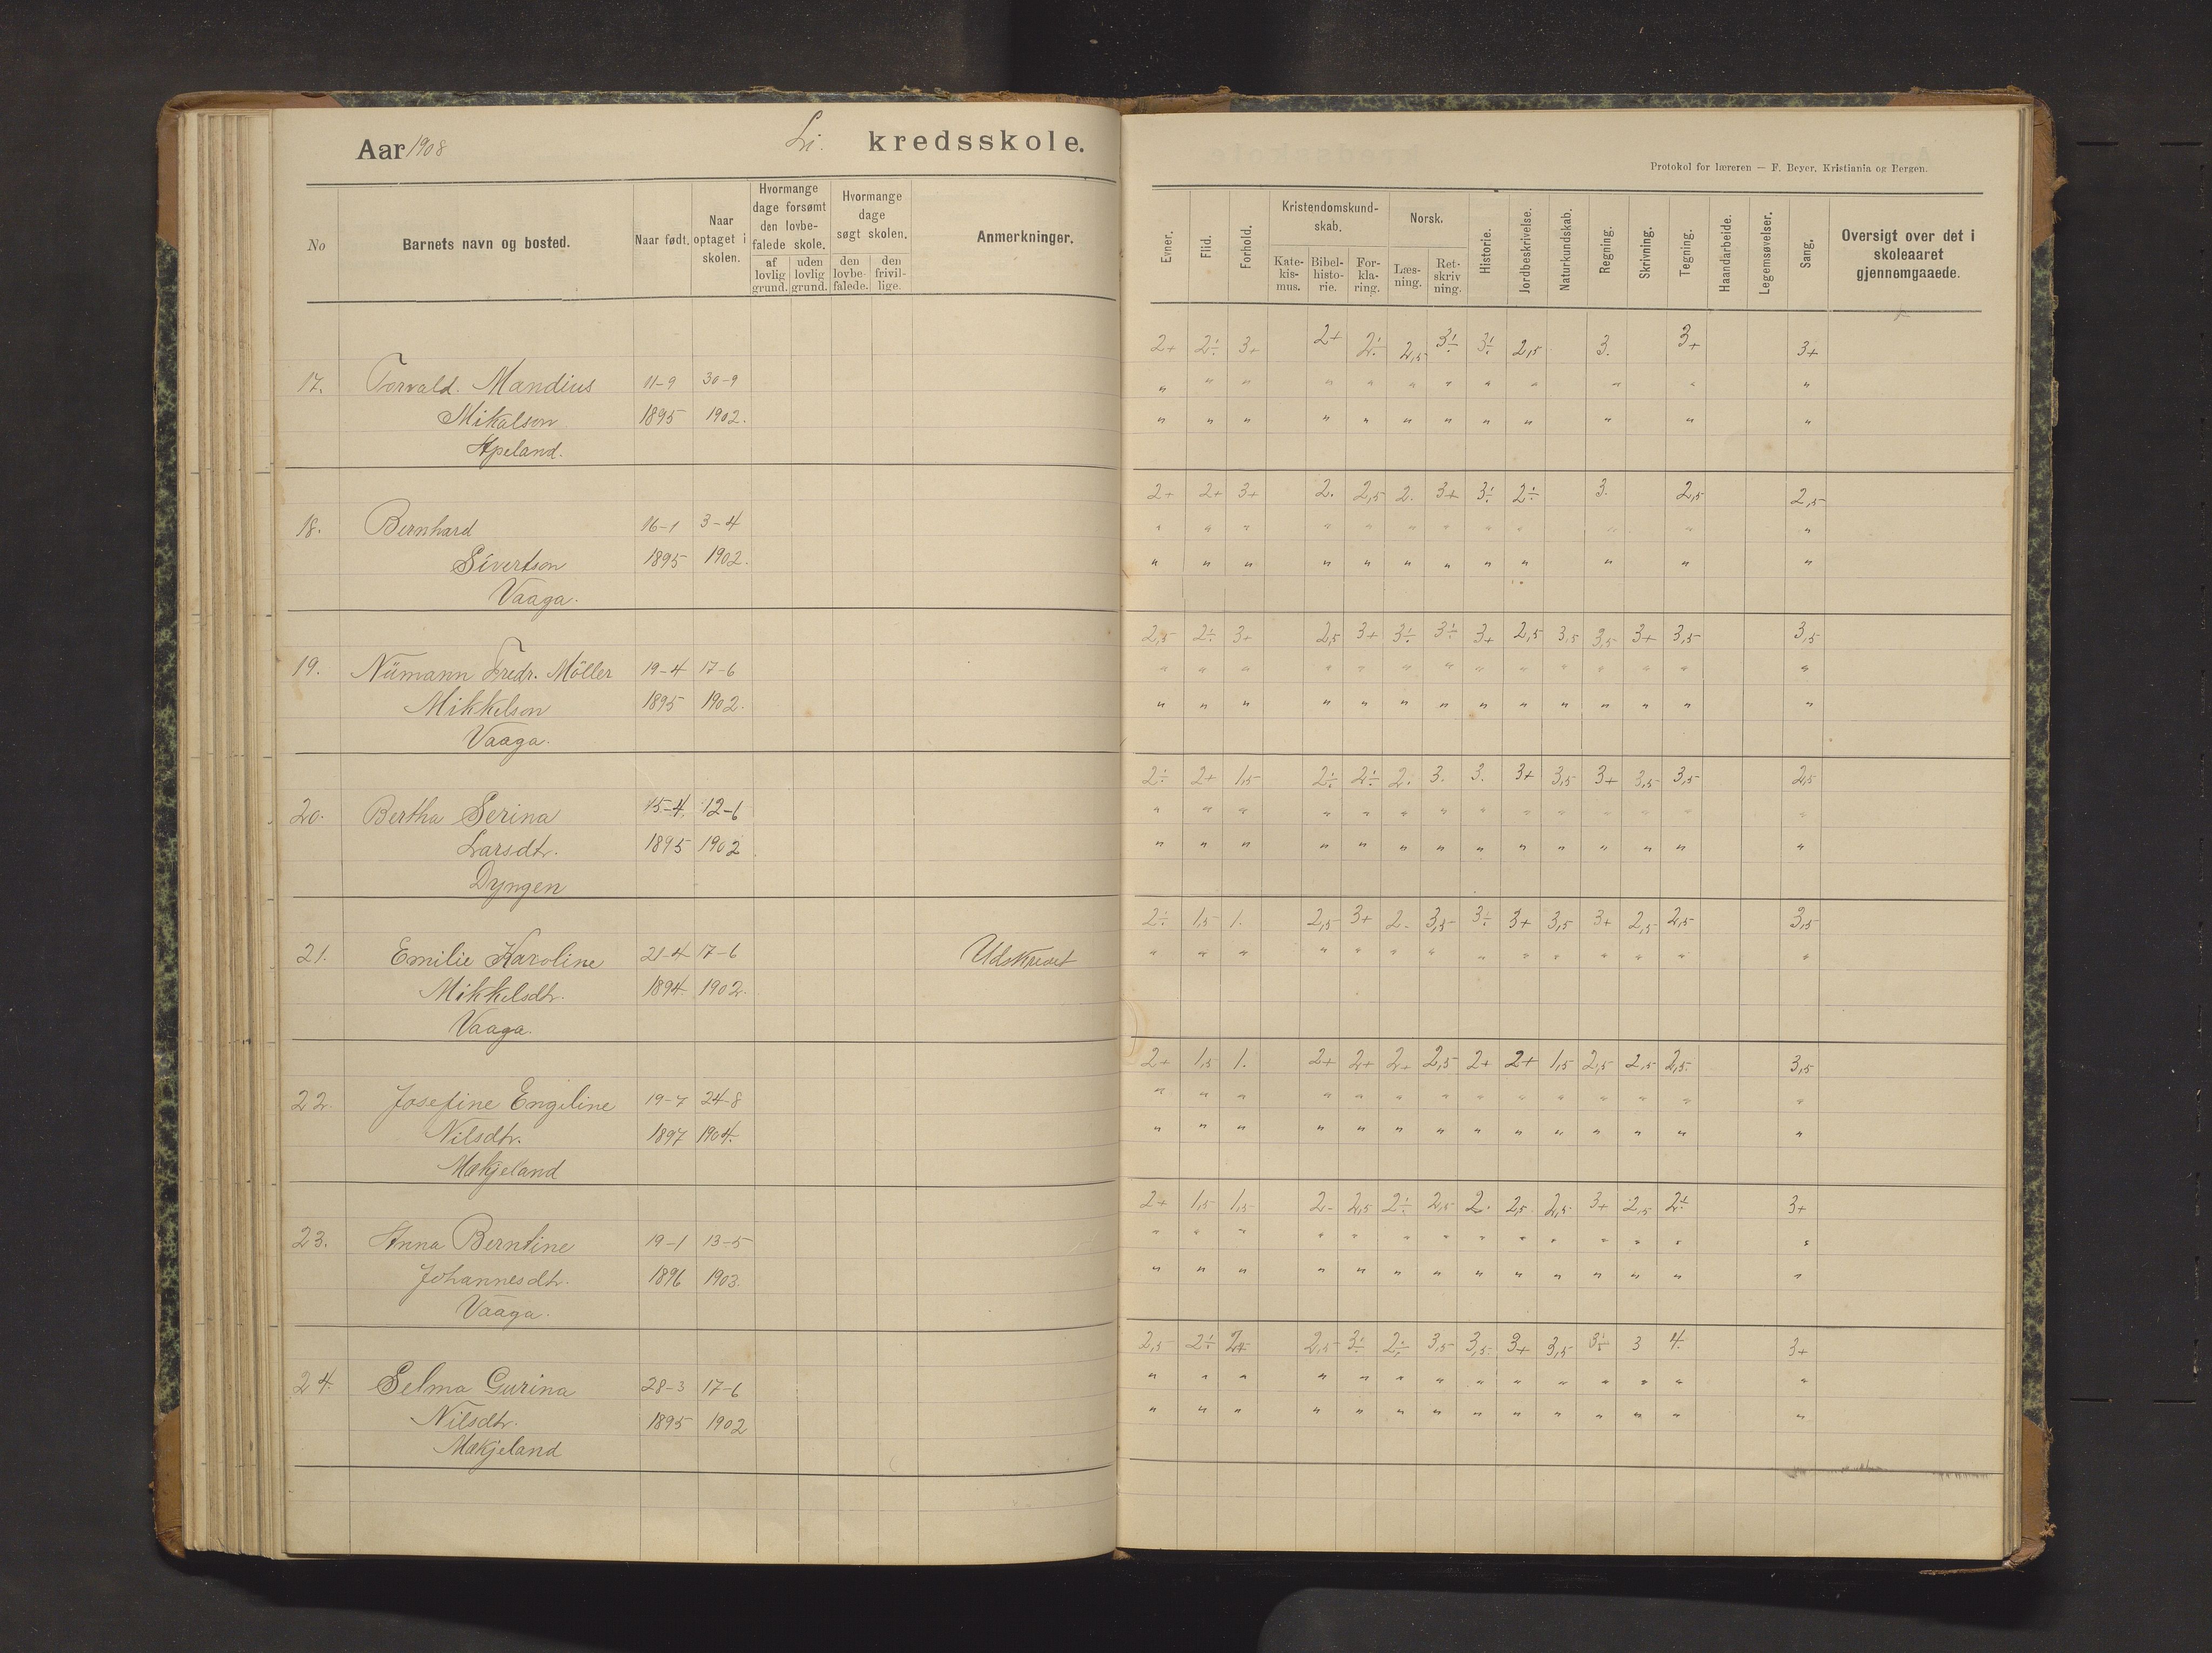 Aar 1908 Li. kredsskole.
Protokol for læreren — F. Beyer, Kristiania og Bergen.
No Barnets navn og bosted. Naar født. Naar optaget i skolen. Hvormange dage forsømt den lovbefalede skole. af lovlig grund. uden lovlig grund. Hvormange dage søgt skolen. den lovbefalede. den frivillige. Anmerkninger.
Evner. Flid. Forhold. Kristendomskundskab. Katekismus. Bibelhistorie. Forklaring. Norsk. Læsning. Retskrivning. Historie. Jordbeskrivelse. Naturkundskab. Regning. Skrivning. Tegning. Haandarbeide. Legemsøvelser. Sang. Oversigt over det i skoleaaret gjennemgaaede.
2+ 2÷ 3+ 2+ 2÷ 2,5 3÷ 3÷ 2,5 3. 3+ 3+
17. Torvald. Mandius 11-9 30-9 " " " " " " " " " " " "
Mikalson 1895 1902. " " " " " " " " " " " "
Apeland.
2+ 2+ 3+ 2. 2,5 2. 3+ 3÷ 2÷ 3. 2,5 2,5
18. Bernhard 16-1 3-4 " " " " " " " " " " " "
Sivertson 1895 1902. " " " " " " " " " " " "
Vaaga.
2,5 2÷ 3+ 2,5 3+ 3÷ 3÷ 3+ 2,5 3,5 3,5 3+ 3,5 3,5
19. Nümann Fredr. Möller 19-4 17-6 " " " " " " " " " " " " " "
Mikkelson 1895 1902. " " " " " " " " " " " " " "
Vaaga.
2÷ 2+ 1,5 2÷ 2÷ 2. 3. 3. 3+ 3,5 3+ 3,5 3,5 2,5
20. Bertha Serina 15-4 12-6 " " " " " " " " " " " " " "
Larsdtr. 1895 1902. " " " " " " " " " " " " " "
Dyngen
2÷ 1,5 1. 2,5 3+ 2. 3,5 3÷ 3+ 3,5 3+ 2,5 2,5 3,5
21. Emilie Karoline 21-4 17-6 Udskrevet " " " " " " " " " " " " " "
Mikkelsdtr. 1894. 1902.
Vaaga.
2+ 1,5 1. 2+ 2+ 2+ 2,5 2+ 2+ 1,5 2,5 2,5 2,5 3,5
22. Josefine Engeline 19-7 24-8 " " " " " " " " " " " " " "
Nilsdtr. 1897 1904. " " " " " " " " " " " " " "
Mækjeland
2+ 1,5 1,5 2. 2,5 2÷ 2,5 2. 2,5 2,5 3+ 2,5 2÷ 3+
23. Anna Berntine 19-1 13-5 " " " " " " " " " " " " " "
Johannesdtr. 1896 1903. " " " " " " " " " " " " " "
Vaaga.
2,5 2÷ 2,5 3÷ 2÷ 3,5 3,5 3+ 3,5 3÷ 3 4. 3+
24. Selma Gurina 28-3 17-6 " " " " " " " " " " " " " "
Nilsdtr. 1895 1902 " " " " " " " " " " " " " "
Mækjeland